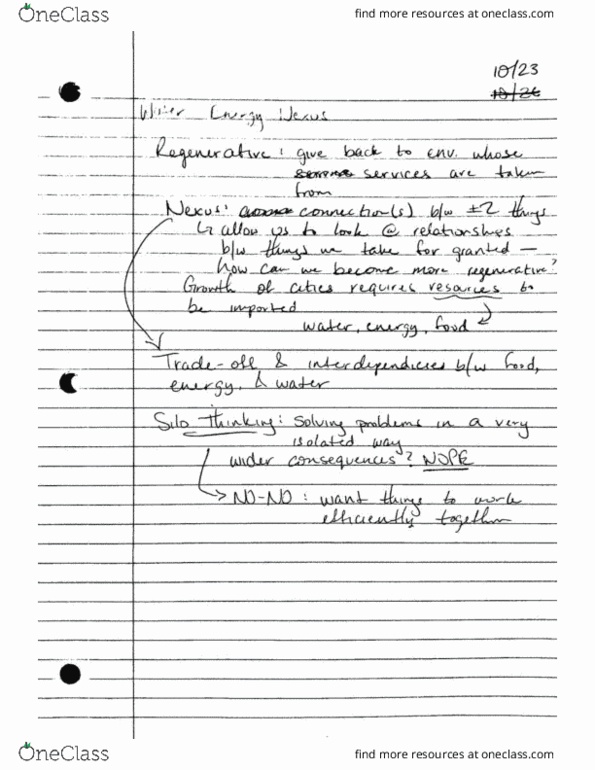 OneClass
find more resources at oneclass.com
10/23
10/26
Water Energy Nexus
Regenerative: give back to env. whose
services are taken
from
Nexus: connection(s) b/w ±2 things
↳ allow us to look @ relationships
b/w things we take for granted —
how can we become more regenerative?
Growth of cities requires resources to
be imported
water, energy, food
Trade-off & interdependicies b/w food,
energy, & water
Silo Thinking: Solving problems in a very
isolated way
wider consequences? NOPE
→ NO-NO: want things to work
efficiently together
OneClass
find more resources at oneclass.com